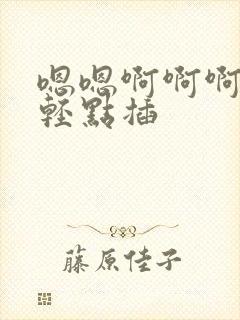 嗯嗯啊啊啊
輕點插
藤原佳子